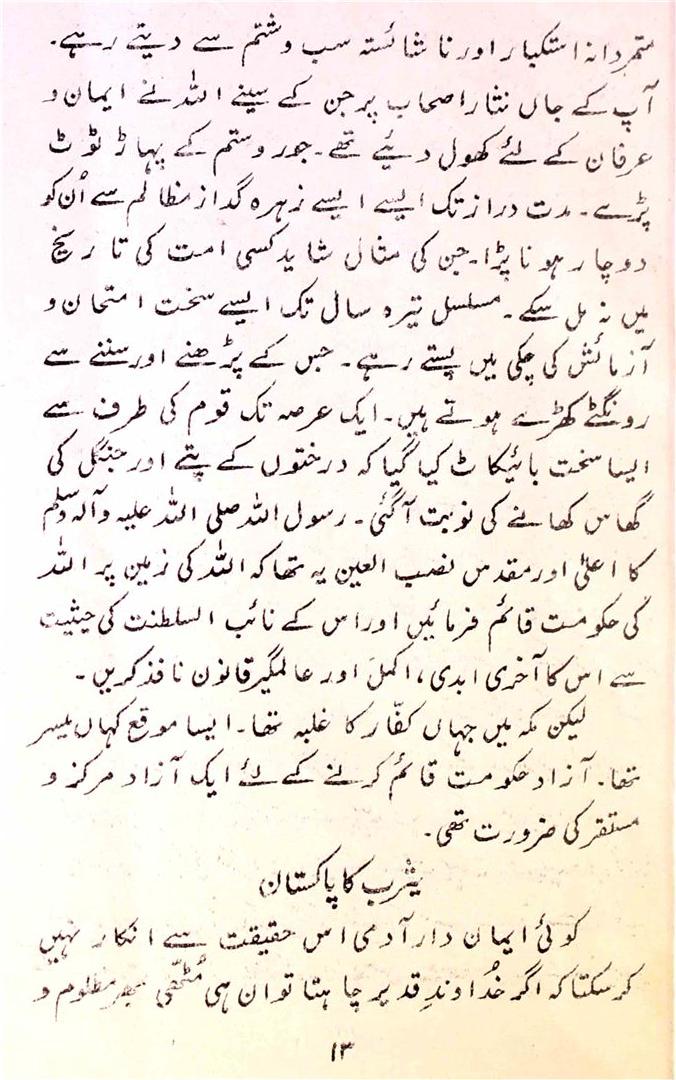 متمردانہ استکبار اور ناشائستہ سب وشتم سے دیتے رہے۔
آپ کے جاں نثار اصحاب پر جن کے سینے اللہ نے ایمان و
عرفان کے لئے کھول دیئے تھے۔ جور وستم کے پہاڑ ٹوٹ
پڑے۔ مدت دراز تک ایسے ایسے زہرہ گداز مظالم سے اُن کو
دوچار ہونا پڑا۔ جن کی مثال شاید کسی امت کی تاریخ
میں نہ مل سکے۔ مسلسل تیرہ سال تک ایسے سخت امتحان و
آزمائش کی چکی میں پستے رہے۔ جس کے پڑھنے اور سننے سے
رونگٹے کھڑے ہوتے ہیں۔ ایک عرصہ تک قوم کی طرف سے
ایسا سخت بائیکاٹ کیا گیا کہ درختوں کے پتے اور جنگل کی
گھاس کھانے کی نوبت آگئی۔ رسول اللہ صلی اللہ علیہ وآلہ وسلم
کا اعلیٰ اور مقدس نصب العین یہ تھا کہ اللہ کی زمین پر اللہ
کی حکومت قائم فرمائیں اور اس کے نائب السلطنت کی حیثیت
سے اس کا آخری ابدی، اکمل اور عالمگیر قانون نافذ کریں۔
لیکن مکہ میں جہاں کفّار کا غلبہ تھا۔ ایسا موقع کہاں میسر
تھا۔ آزاد حکومت قائم کرنے کے لئے ایک آزاد مرکز و
مستقر کی ضرورت تھی۔
یثرب کا پاکستان
کوئی ایمان دار آدمی اس حقیقت سے انکار نہیں
کر سکتا کہ اگر خُداوندِ قدیر چاہتا تو ان ہی مُٹھی بھر مظلوم و
۱۳